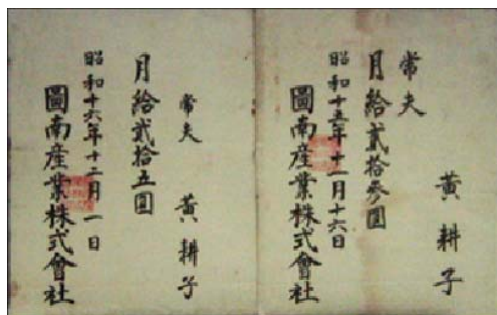 黄耕子
常夫
月給貳拾參圓
昭和十五年十二月十六日
圖南産業株式會社
常夫 黄耕子
月給貳拾五圓
昭和十六年十二月一日
圖南産業株式會社